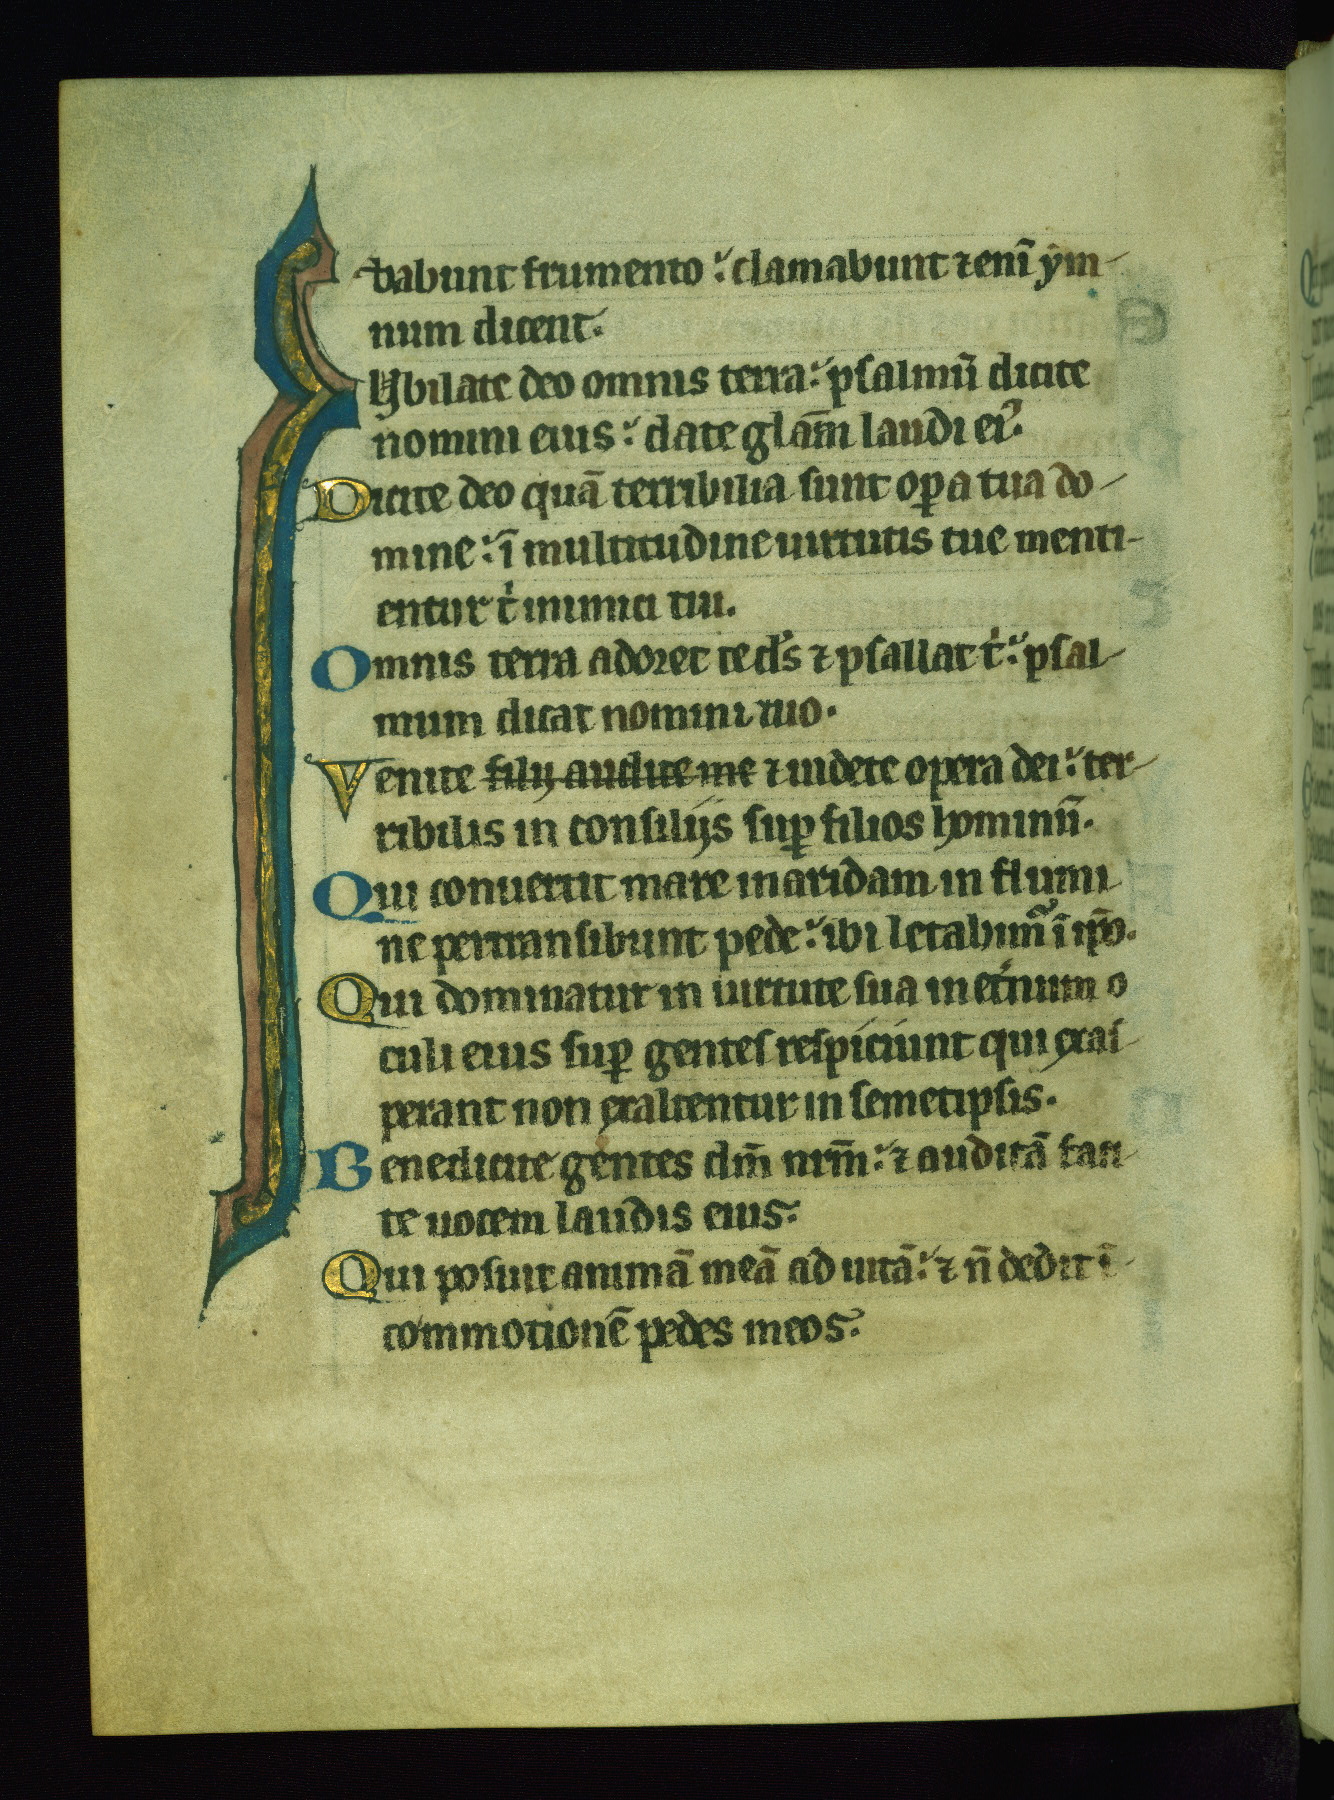 babunt frumento : clamabunt ⁊ enĩ ẏm-
num dicent.
IUbilate deo omnis terra : psalmũ dicite
nomini eius : date glãm laudi ei᷒.
Dicite deo quã terribilia sunt oꝑa tua do-
mine : ĩ multitudine uirtutis tue menti-
entur tͥ inimici tui.
Omnis terra adoret te dˢ ⁊ psallat tͥ : psal-
mum dicat nomini tuo.
Venite filij audite me ⁊ uidete opera dei : ter-
ribilis in consilijs suꝑ filios hominũ.
Qui conuertit mare in aridam in flumi-
ne pertransibunt pede : ibi letabimᷣ ĩ ip̃o.
Qui dominatur in uirtute sua in et͛num o
culi eius suꝑ gentes respiciunt qui exas-
perant non exaltentur in semetipsis.
Benedicite gentes dm̃ nrm̃ : ⁊ auditã faci-
te uocem laudis eius.
Qui posuit animã meã ad uitã : ⁊ ñ dedit ĩ
commotionẽ pedes meos.